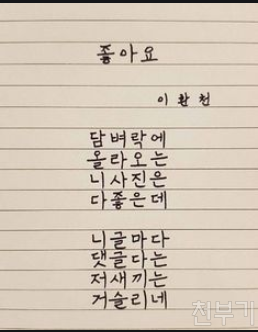 좋아요
이환천
담벼락에
올라오는
니사진은
다좋은데
니글마다
댓글다는
저새끼는
거슬리네
천부기